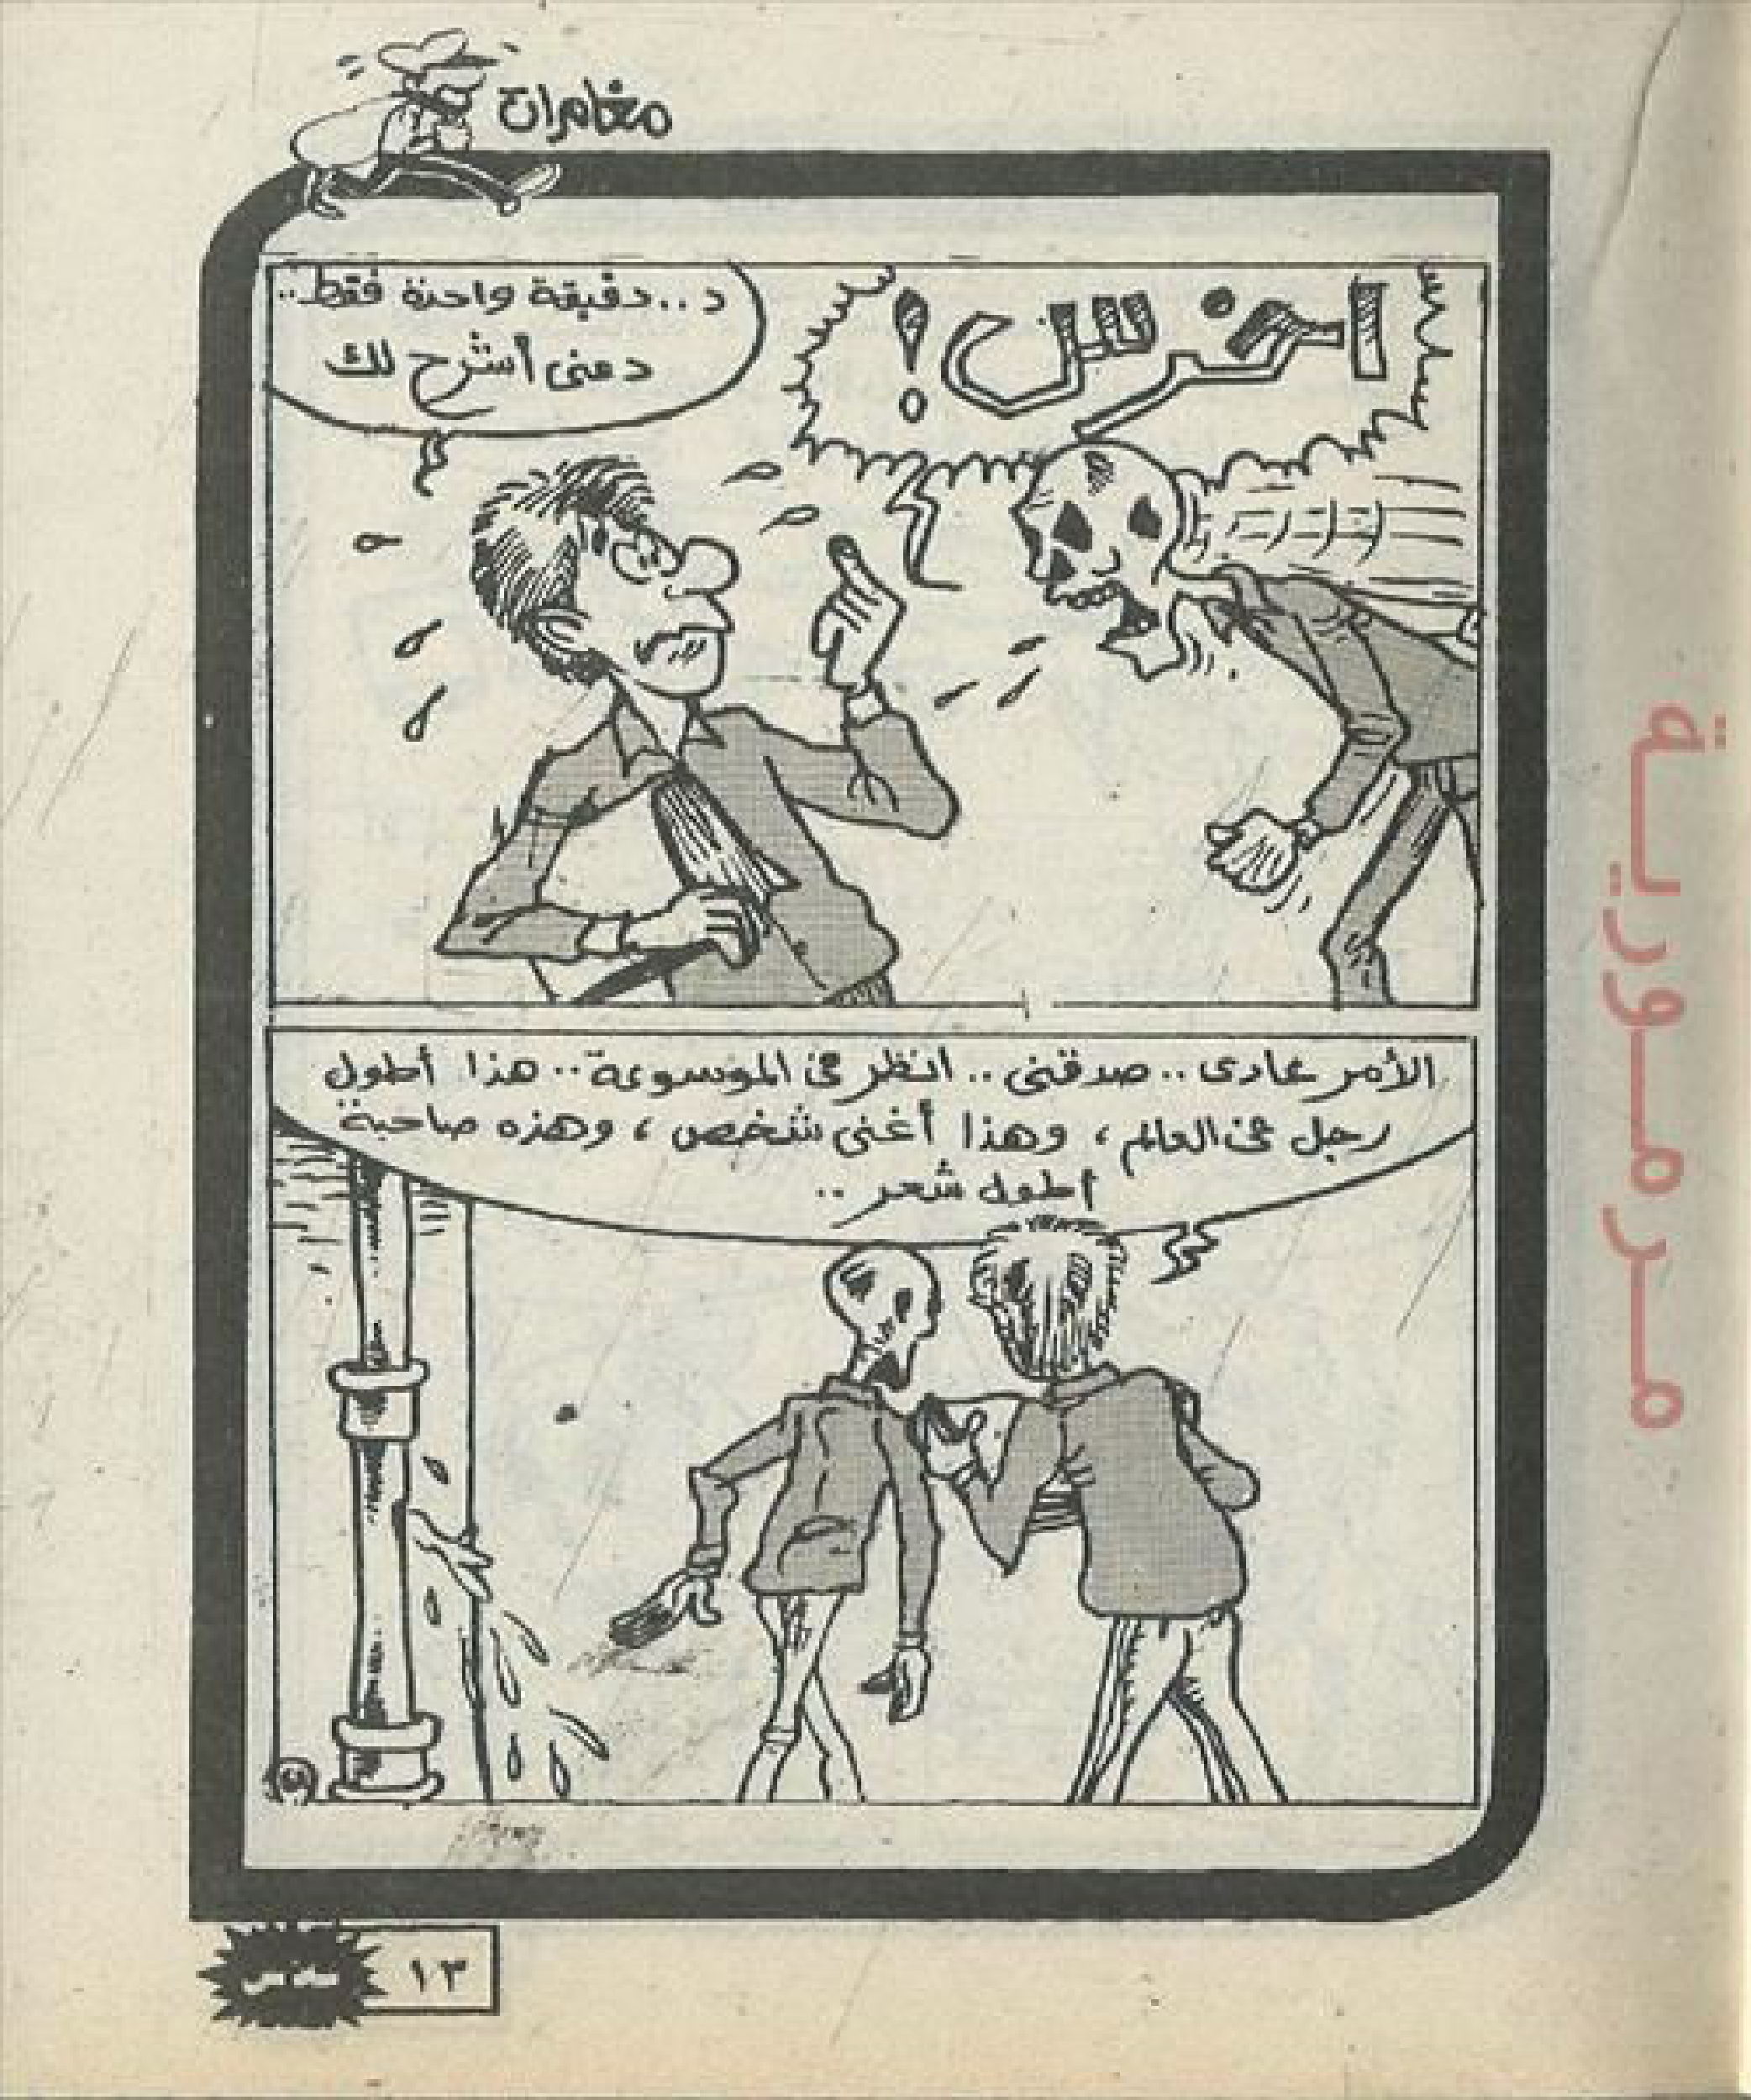 مغامرات
اخرس!
د..دقيقة واحدة فقط..
دعنى أشرح لك
الأمر عادى.. صدقنى.. انظر فى الموسوعة.. هذا أطول
رجل فى العالم، وهذا أغنى شخص، وهذه صاحبة
أطول شعر..
١٣
مرمورية